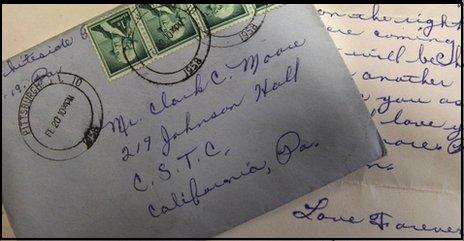 19, Pa.
PITTSBURGH
10
FE 20
10 PM
1958
1958
Mr. Clark C. Moore
219 Johnson Hall
C. S. T. C.
California, Pa.
on the right
are coming
will be
another
you as
love y
Love Forever